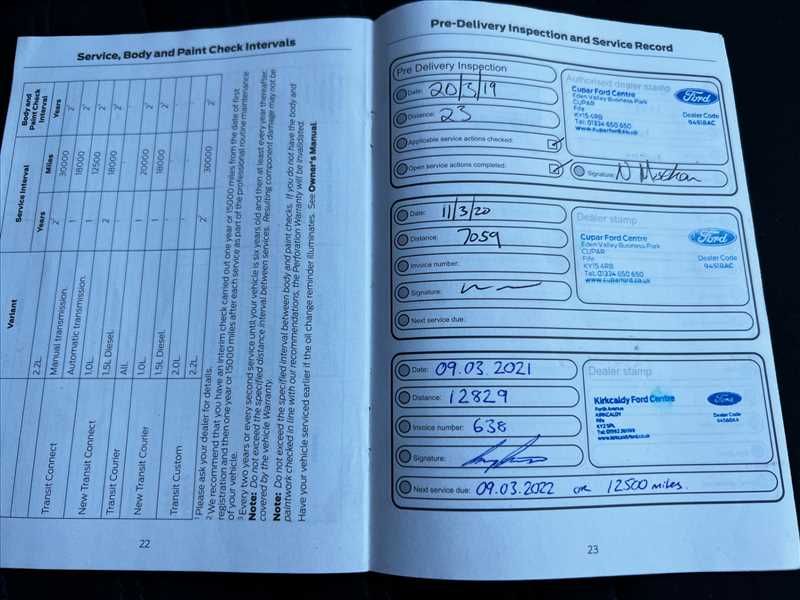 Service, Body and Paint Check Intervals
Variant
Service Interval
Body and Paint Check Interval
Years
Miles
Years
Transit Connect
2.2L
Manual transmission.
2
30000
Automatic transmission.
1
18000
New Transit Connect
1.0L
1
12500
1.5L Diesel.
2
18000
Transit Courier
All.
New Transit Courier
1.0L
1
20000
1.5L Diesel.
1
18000
Transit Custom
2.0L
2.2L
30000
1 Please ask your dealer for details.
2 We recommend that you have an interim check carried out one year or 15000 miles from the date of first
registration and then one year or 15000 miles after each service as part of the professional routine maintenance
of your vehicle.
3 Every two years or every second service until your vehicle is six years old and then at least every year thereafter.
Note: Do not exceed the specified distance interval between services. Resulting component damage may not be
covered by the vehicle Warranty.
Note: Do not exceed the specified interval between body and paint checks. If you do not have the body and
paintwork checked in line with our recommendations, the Perforation Warranty will be invalidated.
Have your vehicle serviced earlier if the oil change reminder illuminates. See Owner's Manual.
22
Pre-Delivery Inspection and Service Record
Pre Delivery Inspection
Date: 20/3/19
Distance: 23
Applicable service actions checked:
Open service actions completed:
Authorised dealer stamp
Cupar Ford Centre
Eden Valley Business Park
CUPAR
Fife
KY15 4RB
Tel: 01334 650 650
www.cuparford.co.uk
Ford
Dealer Code
94518AC
Signature:
Date: 11/3/20
Distance: 7059
Invoice number:
Signature:
Next service due:
Dealer stamp
Cupar Ford Centre
Eden Valley Business Park
CUPAR
Fife
KY15 4RB
Tel: 01334 650 650
www.cuparford.co.uk
Ford
Dealer Code
94518AC
Date: 09.03 2021
Distance: 12829
Invoice number: 638
Signature:
Next service due: 09.03.2022 or 12500 miles.
Dealer stamp
Kirkcaldy Ford Centre
Forth Avenue
KIRKCALDY
Fife
KY2 5PL
www.kirkcaldyford.co.uk
Ford
Dealer Code
23